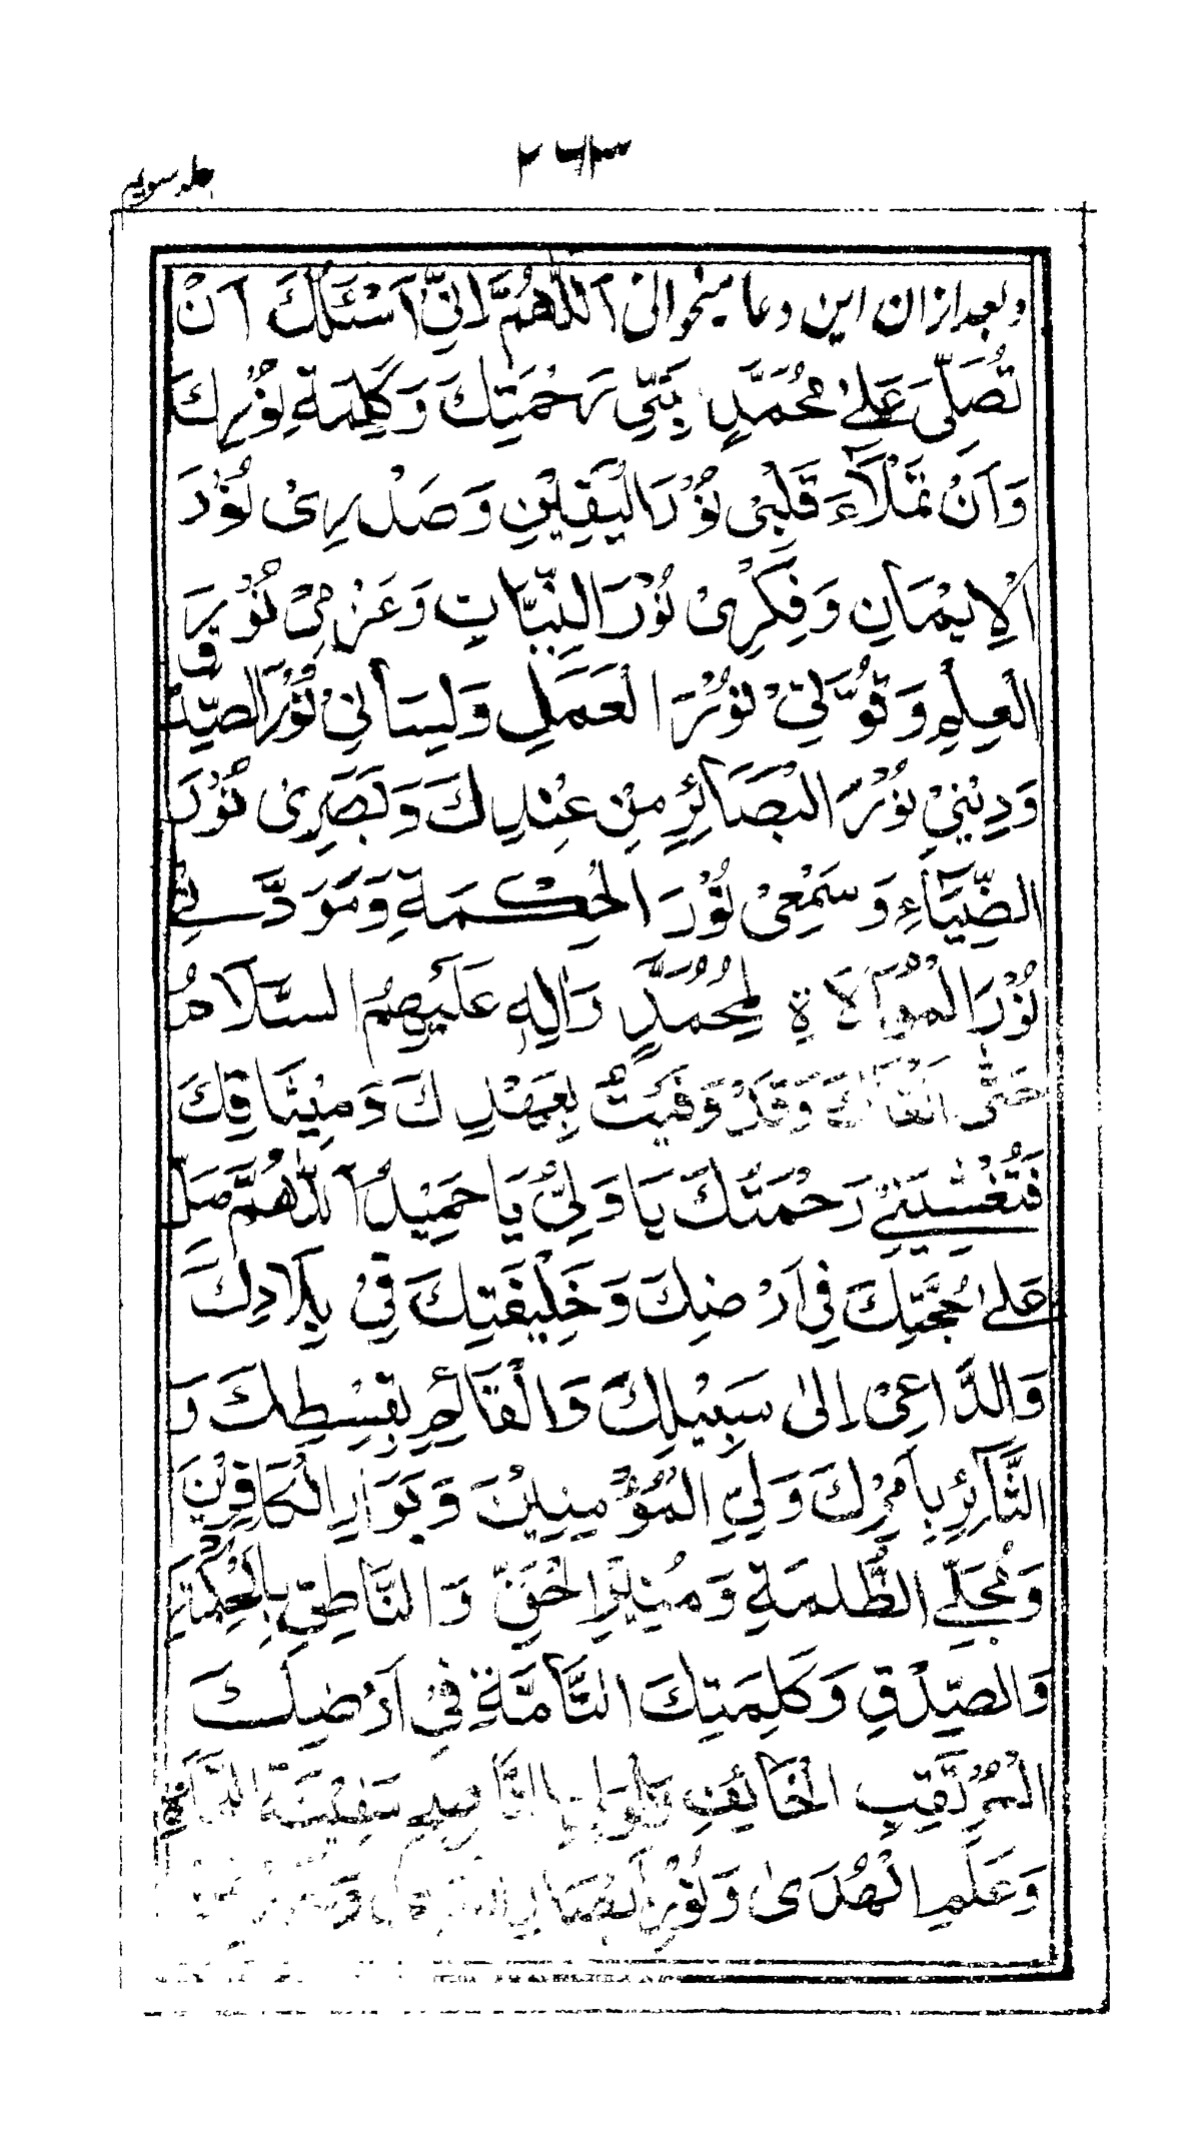 ۲۶۳
جلد سویم
و بعد ازان این دعا میخوانی اَللّٰهُمَّ اِنِّیْ اَسْئَلُكَ اَنْ
تُصَلِّیَ عَلٰی مُحَمَّدٍ نَبِیِّ رَحْمَتِكَ وَكَلِمَةِ نُوْرِكَ
وَاَنْ تَمْلَاَءَ قَلْبِیْ نُوْرَ الْیَقِیْنِ وَصَدْرِیْ نُوْرَ
الْاِیْمَانِ وَفِكْرِیْ نُوْرَ النِّیَّاتِ وَعَزْمِیْ نُوْرَ
الْعِلْمِ وَقُوَّتِیْ نُوْرَ الْعَمَلِ وَلِسَانِیْ نُوْرَ الصِّدْقِ
وَدِیْنِیْ نُوْرَ الْبَصَائِرِ مِنْ عِنْدِكَ وَبَصَرِیْ نُوْرَ
الضِّیَآءِ وَسَمْعِیْ نُوْرَ الْحِكْمَةِ وَمَوَدَّتِیْ
نُوْرَ الْمُوَالَاةِ لِمُحَمَّدٍ وَاٰلِهٖ عَلَیْهِمُ السَّلَامُ
حَتّٰی اَلْقَاكَ وَقَدْ وَفَیْتُ بِعَهْدِكَ وَمِیْثَاقِكَ
فَتُغَشِّیَنِیْ رَحْمَتُكَ یَا وَلِیُّ یَا حَمِیْدُ اَللّٰهُمَّ صَلِّ
عَلٰی حُجَّتِكَ فِیْ اَرْضِكَ وَخَلِیْفَتِكَ فِیْ بِلَادِكَ
وَالدَّاعِیْ اِلٰی سَبِیْلِكَ وَالْقَائِمِ بِقِسْطِكَ وَ
الثَّآئِرِ بِاَمْرِكَ وَلِیِّ الْمُؤْمِنِیْنَ وَبَوَارِ الْكَافِرِیْنَ
وَمُجَلِّی الظُّلْمَةِ وَمُنِیْرِ الْحَقِّ وَالنَّاطِقِ بِالْحِكْمَةِ
وَالصِّدْقِ وَكَلِمَتِكَ التَّآمَّةِ فِیْ اَرْضِكَ
الْمُرْتَقِبِ الْخَائِفِ سَفِیْنَةِ النَّجَاةِ
وَعَلَمِ الْهُدٰی وَنُوْرِ اَبْصَارِ